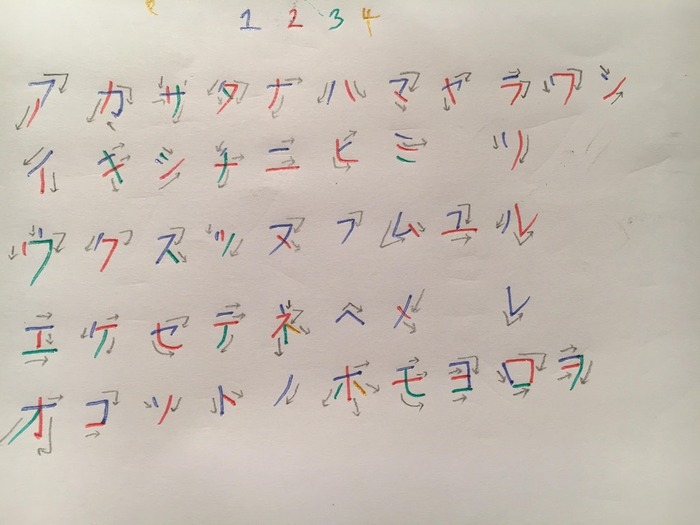 1 2 3 4
ア カ サ タ ナ ハ マ ヤ ラ ワ ン
イ キ シ チ ニ ヒ ミ リ
ウ ク ス ツ ヌ フ ム ユ ル
エ ケ セ テ ネ ヘ メ レ
オ コ ソ ト ノ ホ モ ヨ ロ ヲ